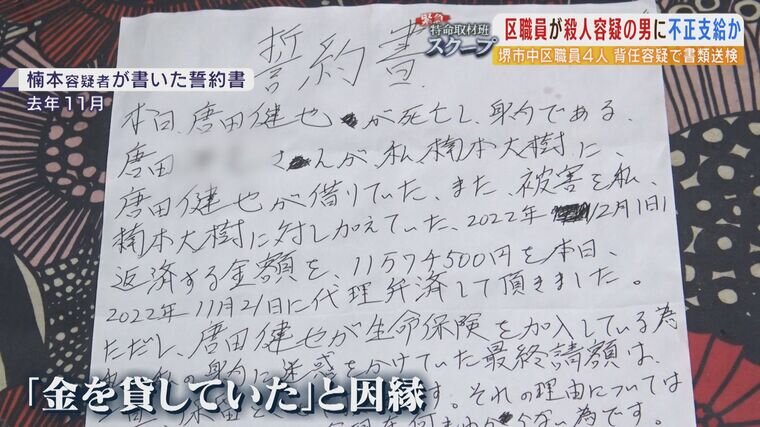 緊急
特命取材班
スクープ
区職員が殺人容疑の男に不正支給か
堺市中区職員4人 背任容疑で書類送検
楠本容疑者が書いた誓約書
去年11月
誓約書
本日、唐田健也 が死亡し、身内である、
唐田 さんが、私、楠本大樹に、
唐田健也が借りていた、また、被害を私、
楠本大樹に対し加えていた、2022年 12月1日
返済する金額を、11万74500円を本日、
2022年11月21日に代理弁済して頂きました。
ただし、唐田健也が生命保険を加入している為
身内に迷惑をかけていた最終請額は、
保留 す。それの理由については
ない為です。
「金を貸していた」と因縁